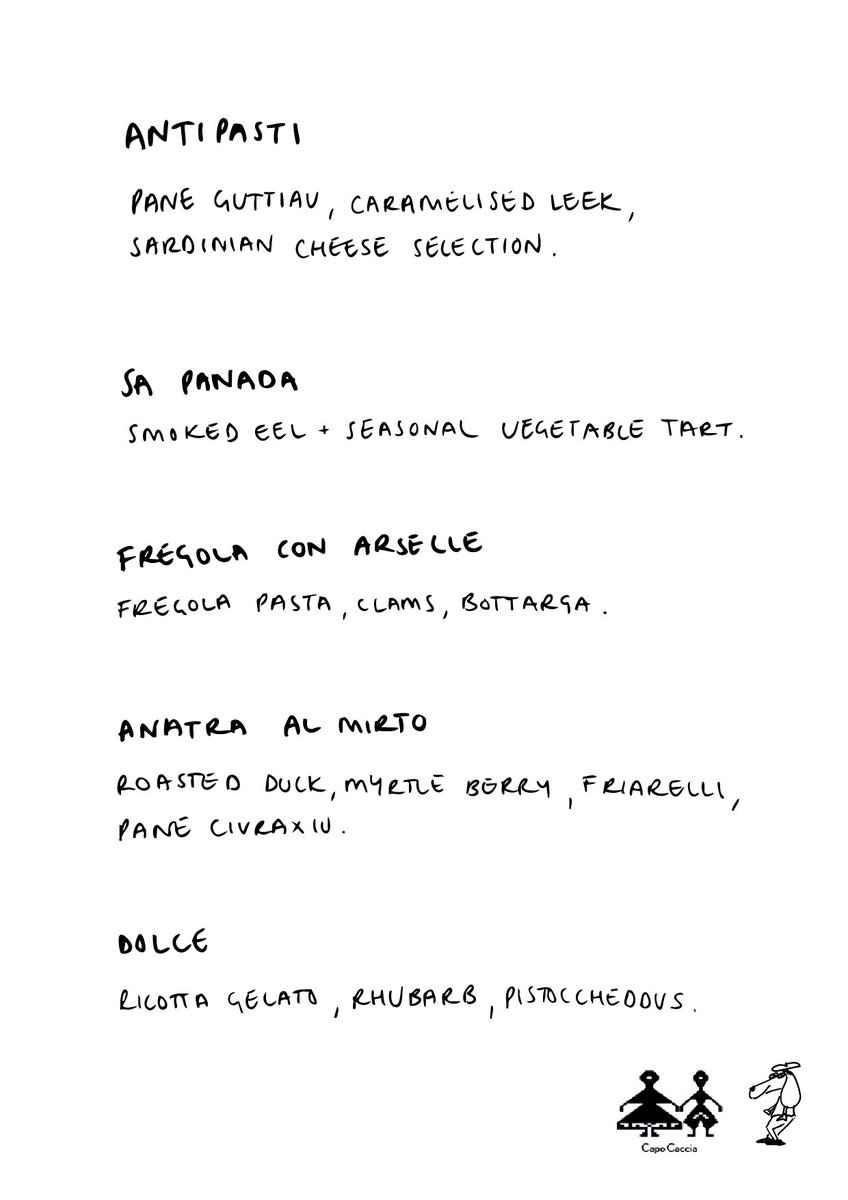 ANTIPASTI
PANE GUTTIAU, CARAMELISED LEEK,
SARDINIAN CHEESE SELECTION.
SA PANADA
SMOKED EEL + SEASONAL VEGETABLE TART.
FREGOLA CON ARSELLE
FREGOLA PASTA, CLAMS, BOTTARGA.
ANATRA AL MIRTO
ROASTED DUCK, MYRTLE BERRY, FRIARELLI,
PANE CIVRAXIU.
DOLCE
RICOTTA GELATO, RHUBARB, PISTOCCHEDDUS.
Capo Caccia